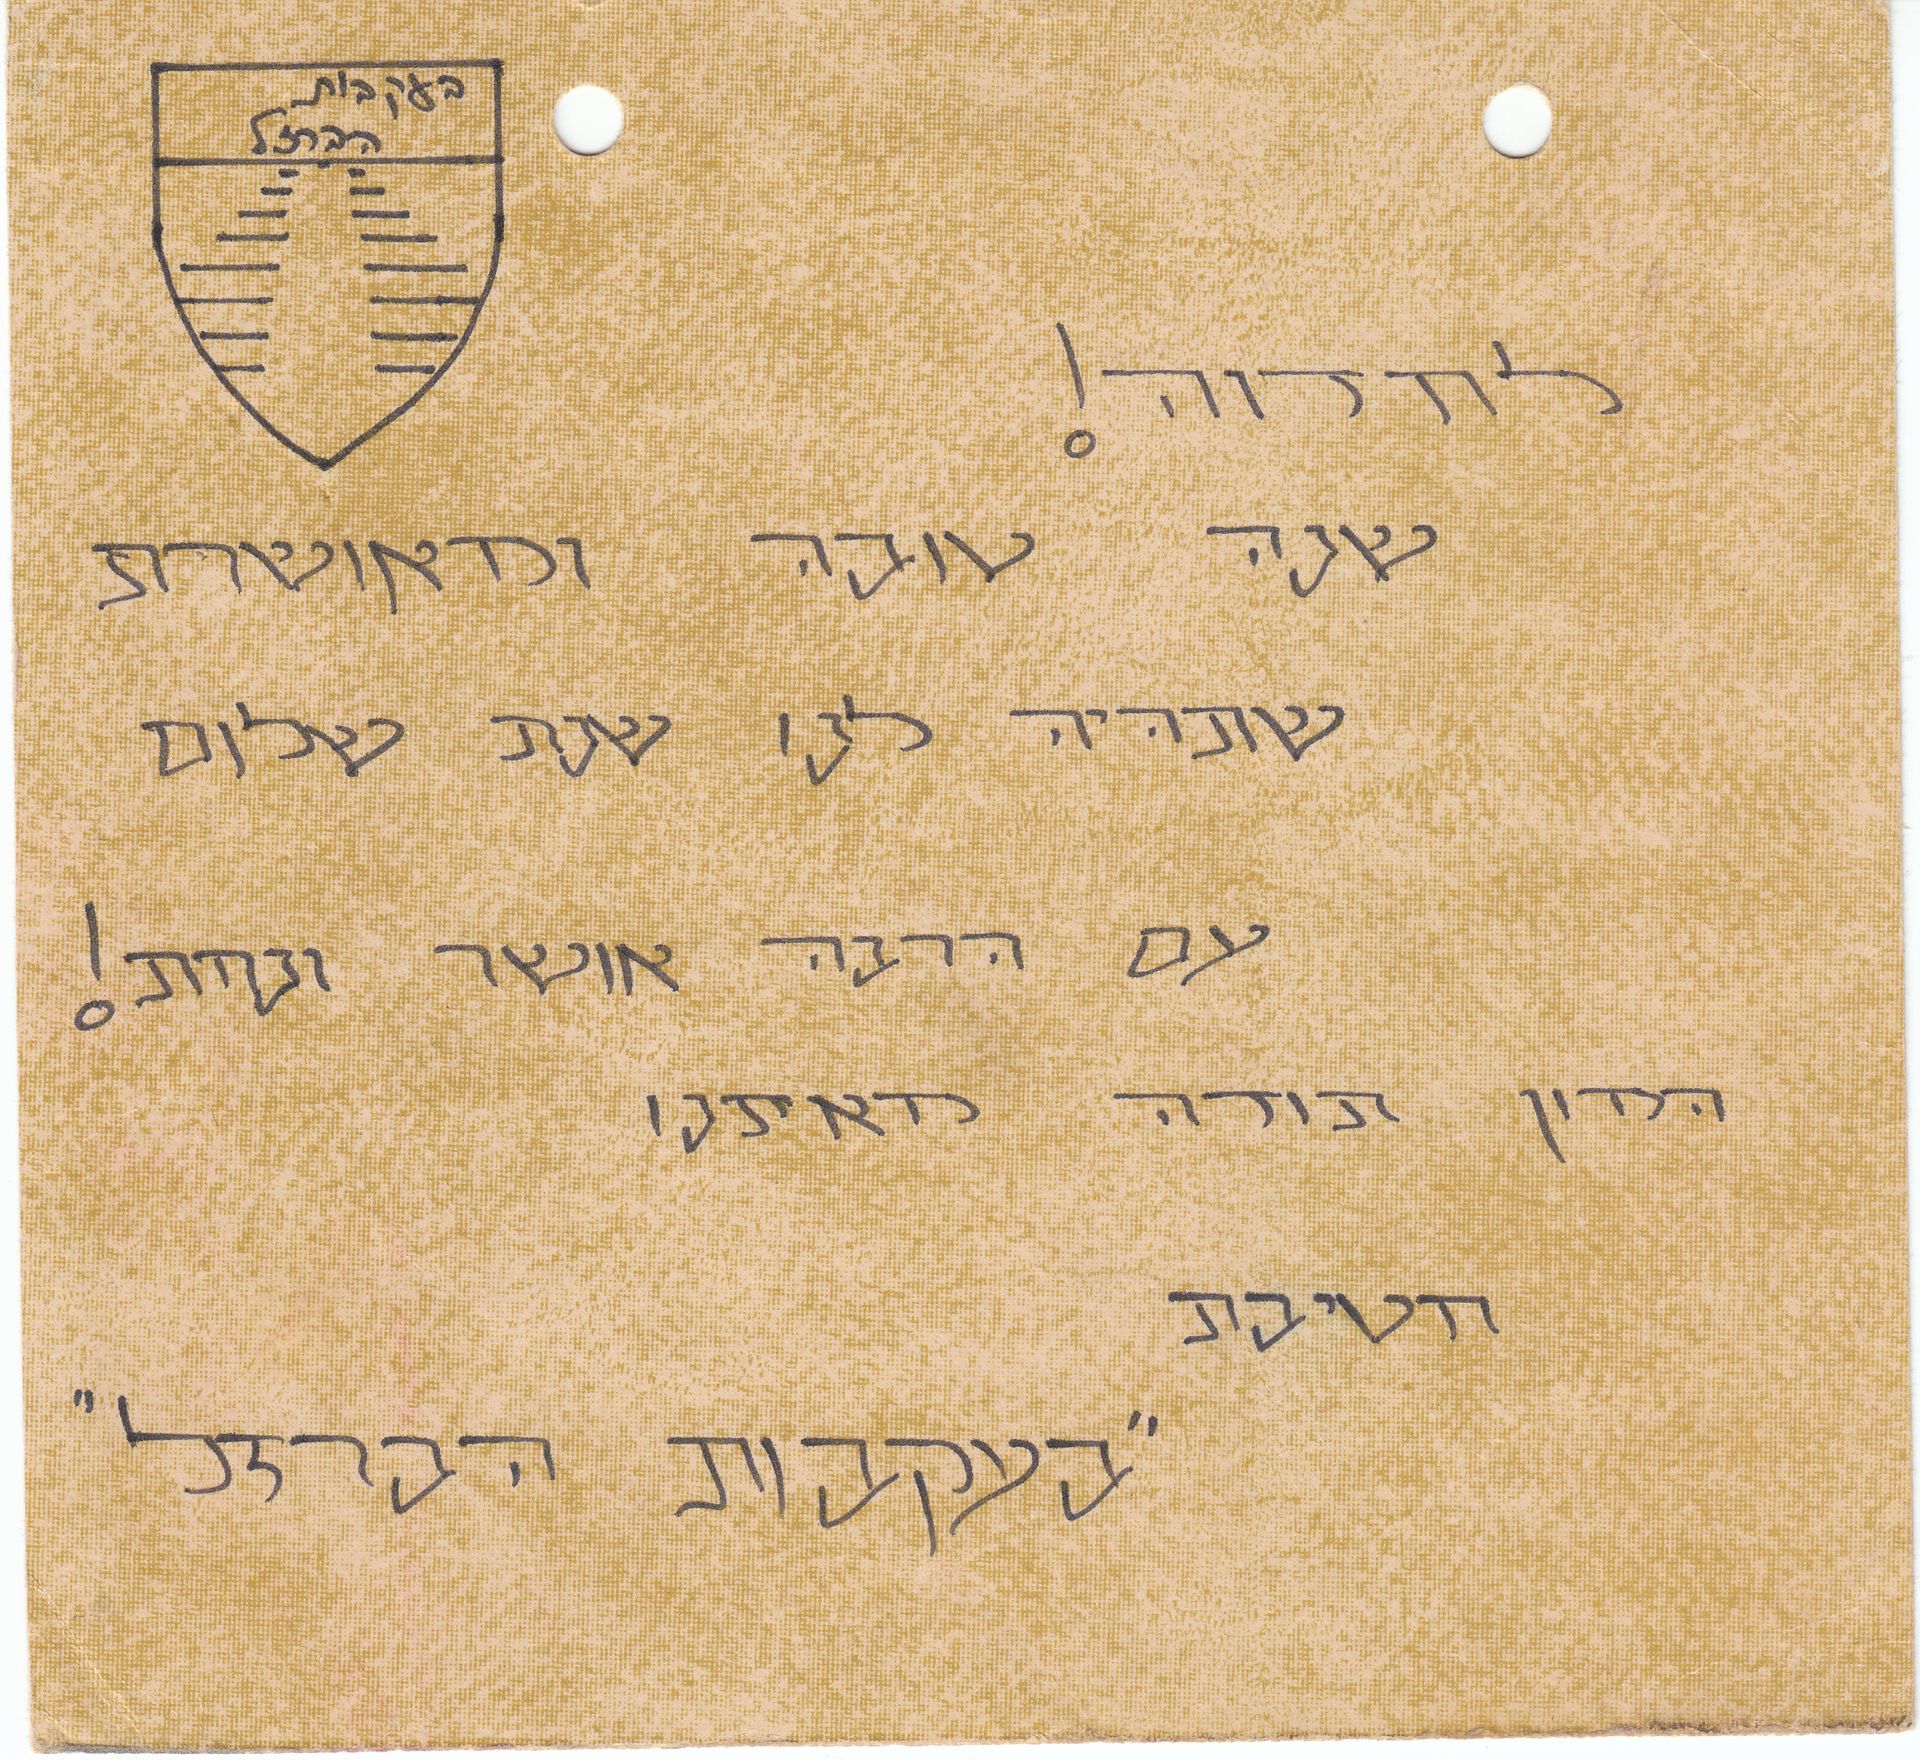 בעקבות
הברזל
לחדוה!
שנה טובה ומאושרת
שתהיה לנו שנת שלום
עם הרבה אושר ונחת!
המון תודה מאיתנו
חטיבת
"בעקבות הברזל"